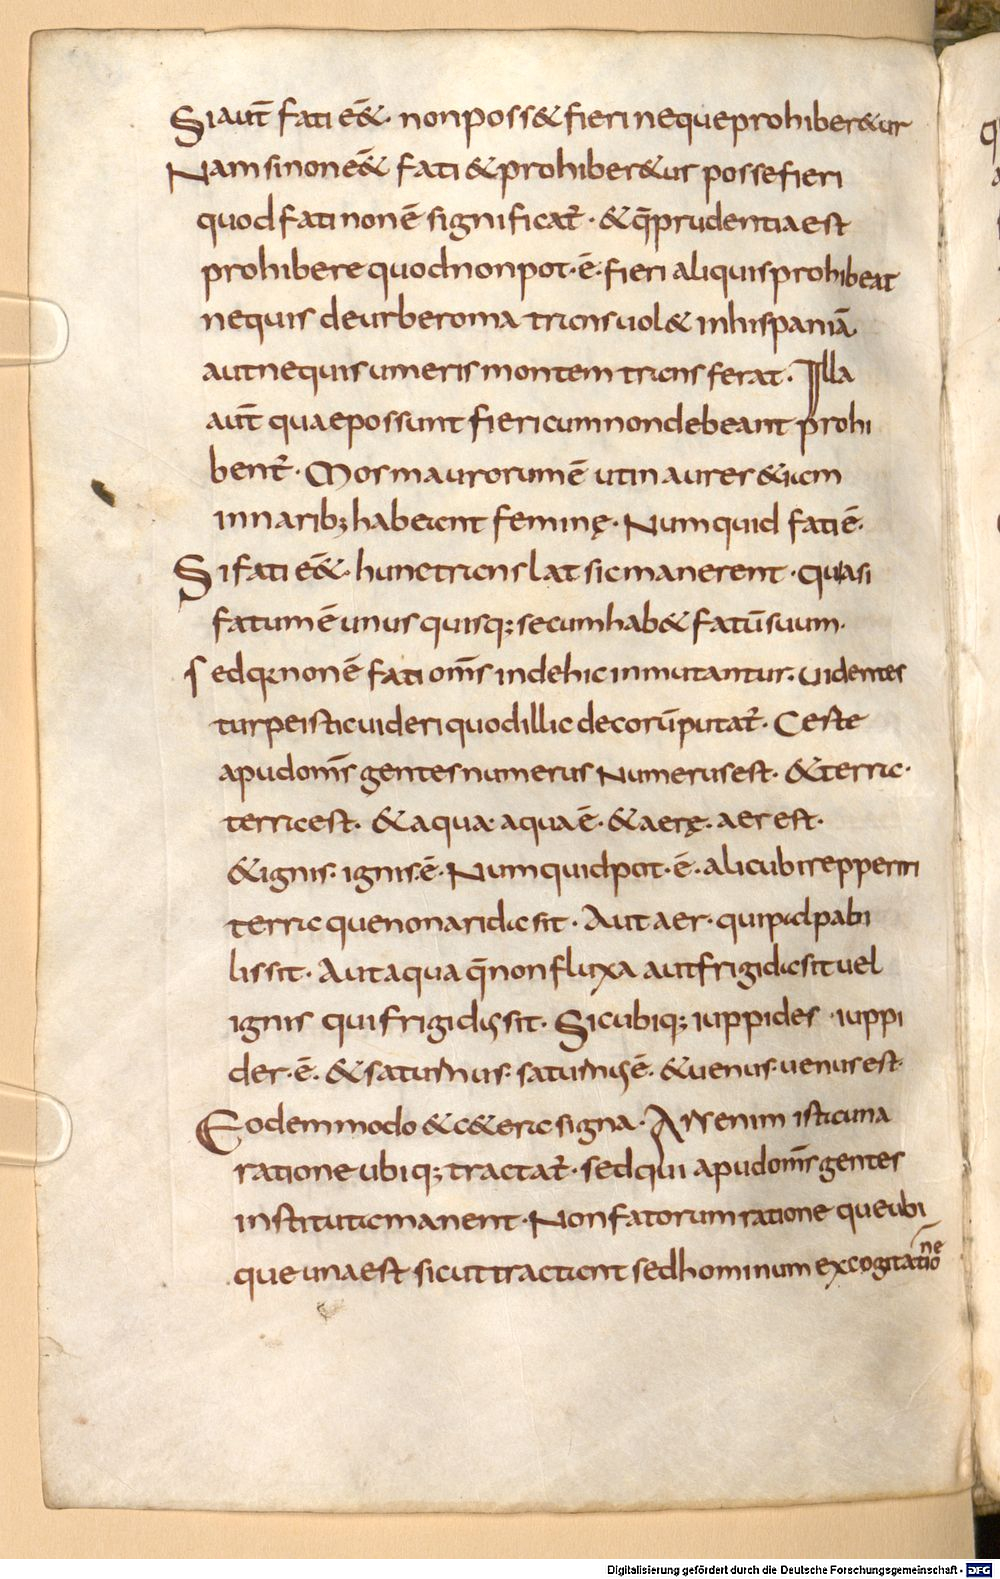 Siaut̄ fati eē&. nonposs& fieri nequeprohiber&ur
Namsinoneē& fati &prohiber&ur possefieri
quod fati nonē significat̄. &q̄prudentiaest
prohibere quodnonpot.ē. fieri aliquisprohibeat
nequis deurberoma transuol& inhispaniā
autnequisumeris montem transferat. Illa
aut̄ quaepossunt fiericumnondebeant prohi
bent̄. Mos maurorumē utin aures &iam
innarib; habeant feminę. Numquid fatiē.
Si fati eē&. hunctranslati sic manerent. quasi
fatumē unusquisq; secumhab& fatūsuum.
sedqr nonē fati om̄s indehic inmutantur. uidentes
turpeisticuideri quodillic decorūputat̄. Certe
apudom̄s gentes numerus Numerusest. &terra.
terraest. &aqua aquaē. &aerę. aer est.
&ignis. ignis.ē. Numquidpot.ē. alicubi repperiri
terra quenonaridasit. Aut aer. quipalpabi
lissit. Autaqua q̄nonfluxa autfrigidasituel
ignis quifrigidussit. Sicubiq; iuppides iuppi
der.ē. &saturnus. saturnusē. &uenus. uenusest.
Eodemmodo &c&erasigna. Ars enim isticuna
ratione ubiq; tractat̄. sedqui apudom̄s gentes
institutamanent. Nonfatorumratione queubi
que unaest sicuttractant sedhominum excogitatio
ne
Digitalisierung gefördert durch die Deutsche Forschungsgemeinschaft - DFG